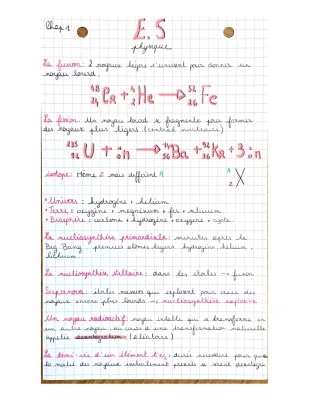 Chap 1
E.S
physique
La fusion: 2 noyaux légers s'unissent pour donner un
noyau lourd.
48 24 Cr + 4 2 He → 52 26 Fe
La fission: Un noyau lourd se fragmente pour former
des noyaux plus légers (central nucléaire)
235 92 U + 1 0 n → Ba + 92 36 Kr + 3 n
isotope: Même Z mais différent A A Z X
• Univers: hydrogène + hélium
• Terre: oxygène + magnésium + fer + silicium
• Biosphère: carbone + hydrogène + oxygène + azote
La nucléosynthèse primordiale: minutes après le
Big Bang premiers éléments légers hydrogène, hélium,
lithium.
La nucléosynthèse stellaire: dans les étoiles → fusion
Supernova: étoiles massives qui explosent pour créer des
noyaux encore plus lourds → nucléosynthèse explosive
Un noyau radioactif: noyau instable qui se transforme en
un autre noyau, au cours d'une transformation naturelle
appelée (aléatoire)
La demi-vie d'un élément t 1/2: durée nécessaire pour que
la moitié des noyaux initialement présents se soient désintégrés